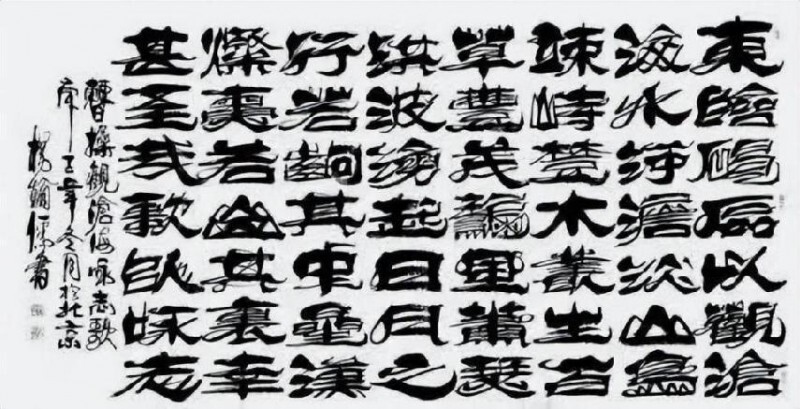 東臨碣石以觀滄
海水何澹澹山島
竦峙樹木叢生百
草豐茂秋風蕭瑟
洪波湧起日月之
行若齣其中星漢
燦爛若出其裏幸
甚至哉歌以詠志
曹操觀滄海咏志歌
辛丑年冬月於北京
楊翰儒書